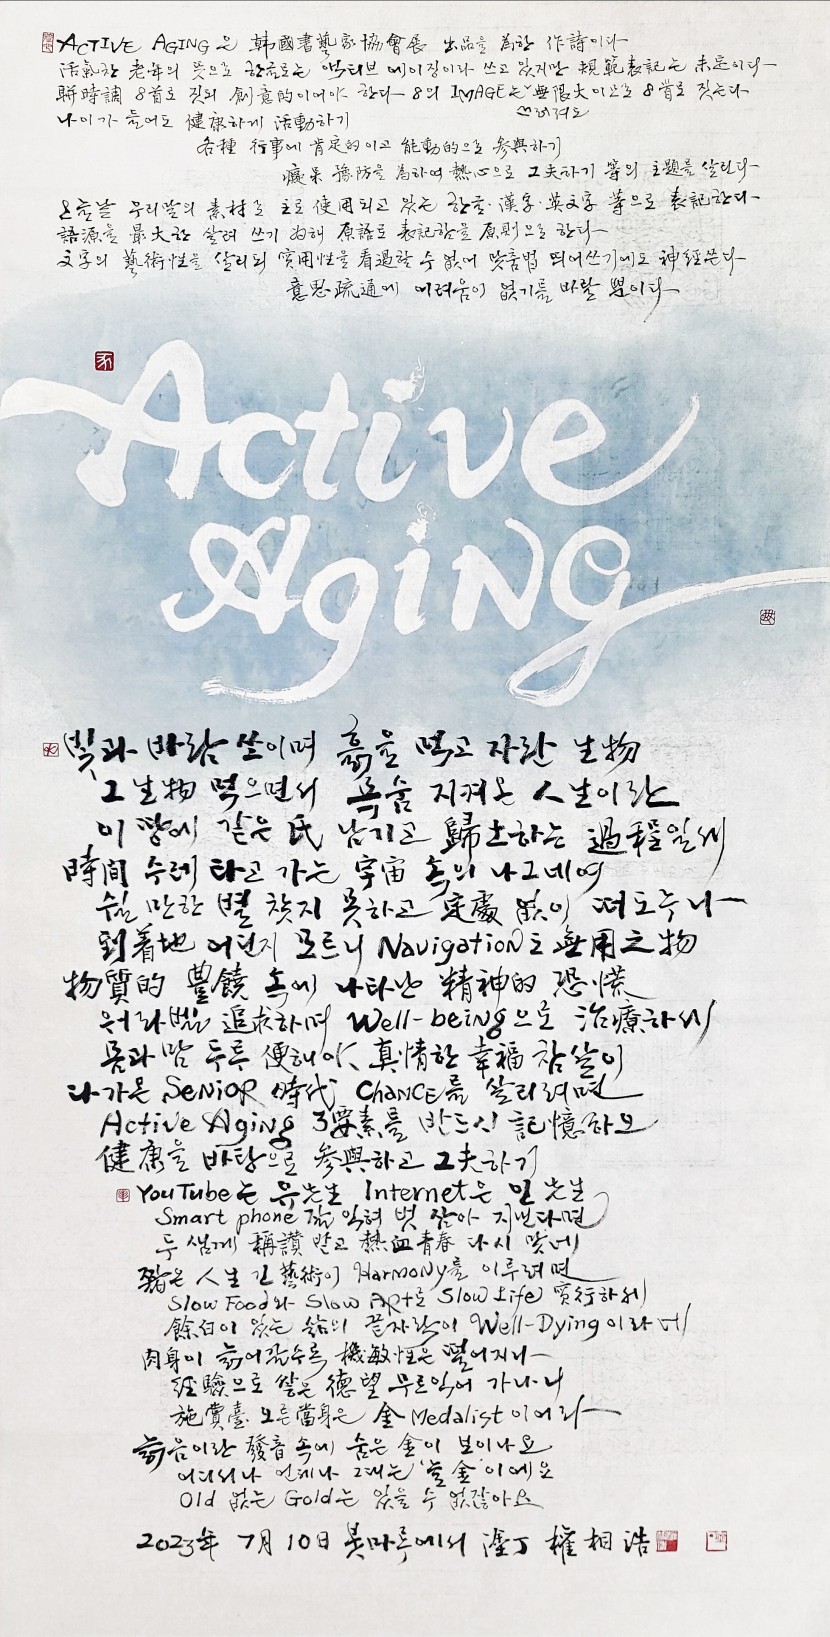 ACTIVE AGING은 韓國書藝家協會展 出品을 為한 作詩이다
活氣찬 老年의 뜻으로 한글로는 액티브 에이징이라 쓰고 있지만 規範表記는 未定이다
聯時調 8首로 짓되 創意的이어야 한다 8의 IMAGE는 無限大이므로 8首로 짓는다
나이가 들어도 健康하게 活動하기
各種 行事에 肯定的이고 能動的으로 參與하기
癡呆 豫防을 為하여 熱心으로 工夫하기 等의 主題를 살린다
오늘날 우리말의 素材로 主로 使用되고 있는 한글·漢字·英文字 等으로 表記한다
語源을 最大한 살려 쓰기 위해 原語로 表記함을 原則으로 한다
文字의 藝術性을 살리되 實用性을 看過할 수 없어 맞춤법 띄어쓰기에도 神經쓴다
意思疏通에 어려움이 없기를 바랄 뿐이다
Active
Aging
빛과 바람 쏘이며 흙을 먹고 자란 生物
그 生物 먹으면서 목숨 지켜온 人生이란
이 땅에 같은 氏 남기고 歸土하는 過程일세
時間 수레 타고 가는 宇宙 속의 나그네여
쉴 만한 별 찾지 못하고 定處 없이 떠도누나
到着地 어딘지 모르니 Navigation도 無用之物
物質的 豊饒 속에 나타난 精神的 恐慌
워라밸을 追求하며 Well-being으로 治療하세
몸과 맘 두루 便해야 眞情한 幸福 참살이
다가온 SENIOR 時代 CHANCE를 살리려면
Active Aging 3要素를 반드시 記憶하고
健康을 바탕으로 參與하고 工夫하기
YouTube는 유先生 Internet은 인先生
Smart phone 잘 익혀 벗 삼아 지낸다면
두 샘께 稱讚 받고 熱血靑春 다시 맞네
짧은 人生 긴 藝術이 HarMoNy를 이루려면
Slow Food와 Slow ARt로 Slow Life 實行하세
餘白이 있는 삶의 끝자락이 Well-Dying이라네
肉身이 늙어갈수록 機敏性은 떨어지나
經驗으로 쌓은 德望 무르익어 가나니
施賞臺 오른 當身은 金Medalist이어라
늙음이란 發音 속에 숨은 金이 보이나요
어디서나 언제나 그대는 '늘金'이에요
Old 없는 Gold는 있을 수 없잖아요
2023年 7月 10日 붓마루에서 塗丁 權相浩